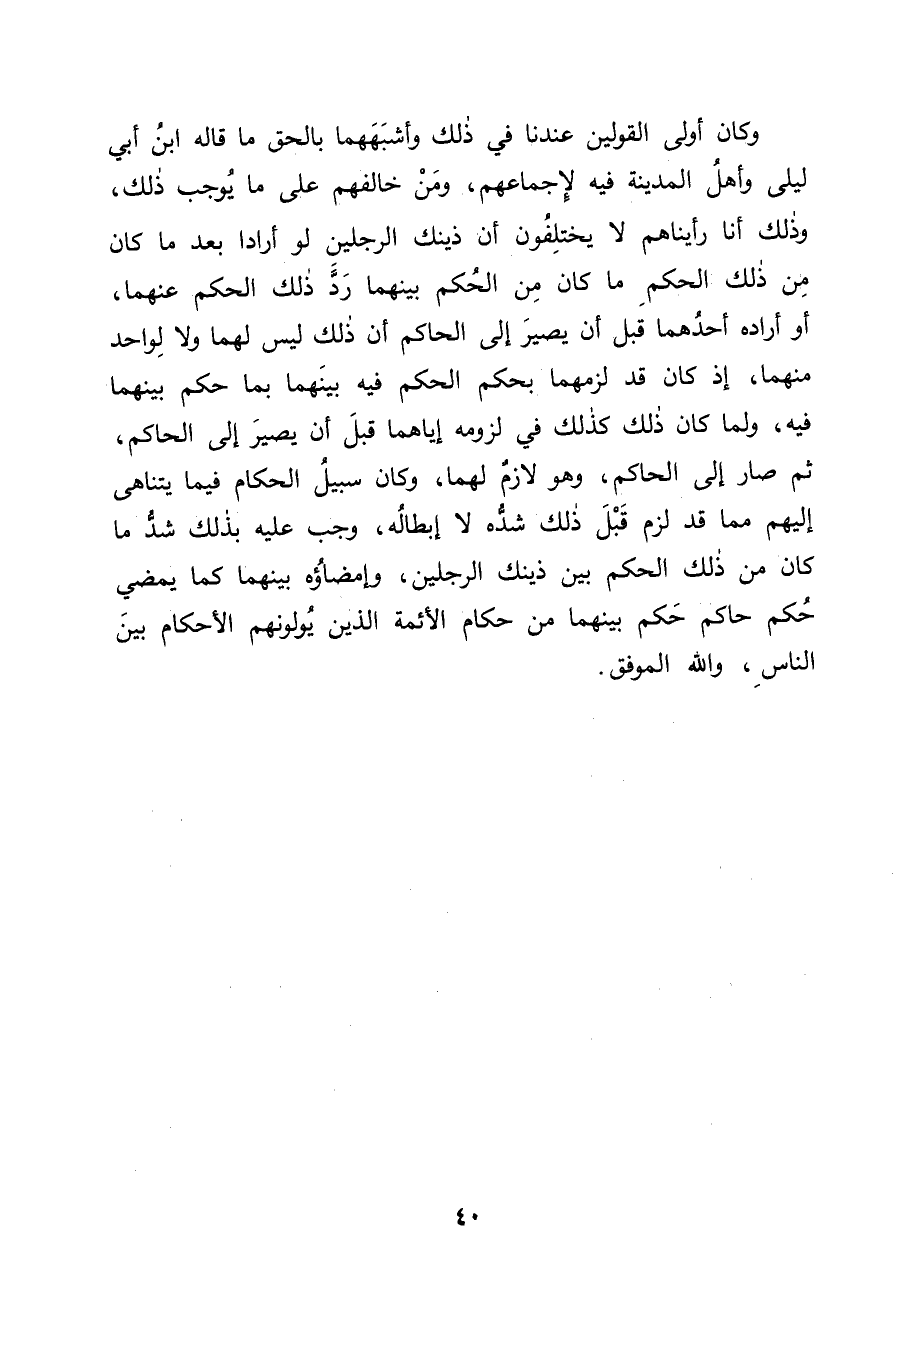 وكان أولى القولين عندنا في ذٰلك وأشبَهَهما بالحق ما قاله ابنُ أبي
ليلى وأهلُ المدينة فيه لإِجماعهم، ومَنْ خالفهم على ما يُوجب ذٰلك،
وذٰلك أنا رأيناهم لا يختلِفُون أن ذينك الرجلين لو أرادا بعد ما كان
مِن ذٰلك الحكمِ ما كان مِن الحُكم بينهما رَدَّ ذٰلك الحكم عنهما،
أو أراده أحدُهما قبل أن يصيرَ إلى الحاكم أن ذٰلك ليس لهما ولا لِواحد
منهما، إذ كان قد لزمهما بحكم الحكم فيه بينَهما بما حكم بينهما
فيه، ولما كان ذٰلك كذٰلك في لزومه إياهما قبلَ أن يصيرَ إلى الحاكم،
ثم صار إلى الحاكم، وهو لازمٌ لهما، وكان سبيلُ الحكام فيما يتناهى
إليهم مما قد لزم قَبْلَ ذٰلك شدُّه لا إبطالُه، وجب عليه بذٰلك شدُّ ما
كان من ذٰلك الحكم بين ذينك الرجلين، وإمضاؤُه بينهما كما يمضي
حُكم حاكم حَكم بينهما من حكام الأئمة الذين يُولونهم الأحكام بينَ
الناسِ، والله الموفق.
٤٠